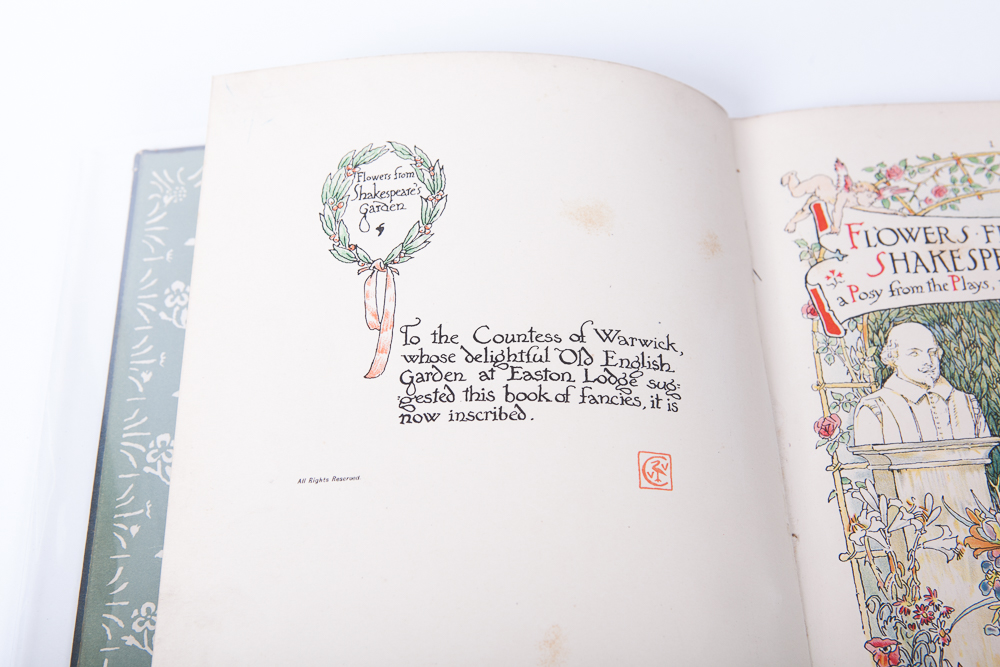 Flowers from
Shakespeare's
Garden
To the Countess of Warwick,
whose delightful Old English
Garden at Easton Lodge sug-
gested this book of fancies, it is
now inscribed.
All Rights Reserved.
FLOWERS · F
SHAKESPE
a Posy from the Plays,